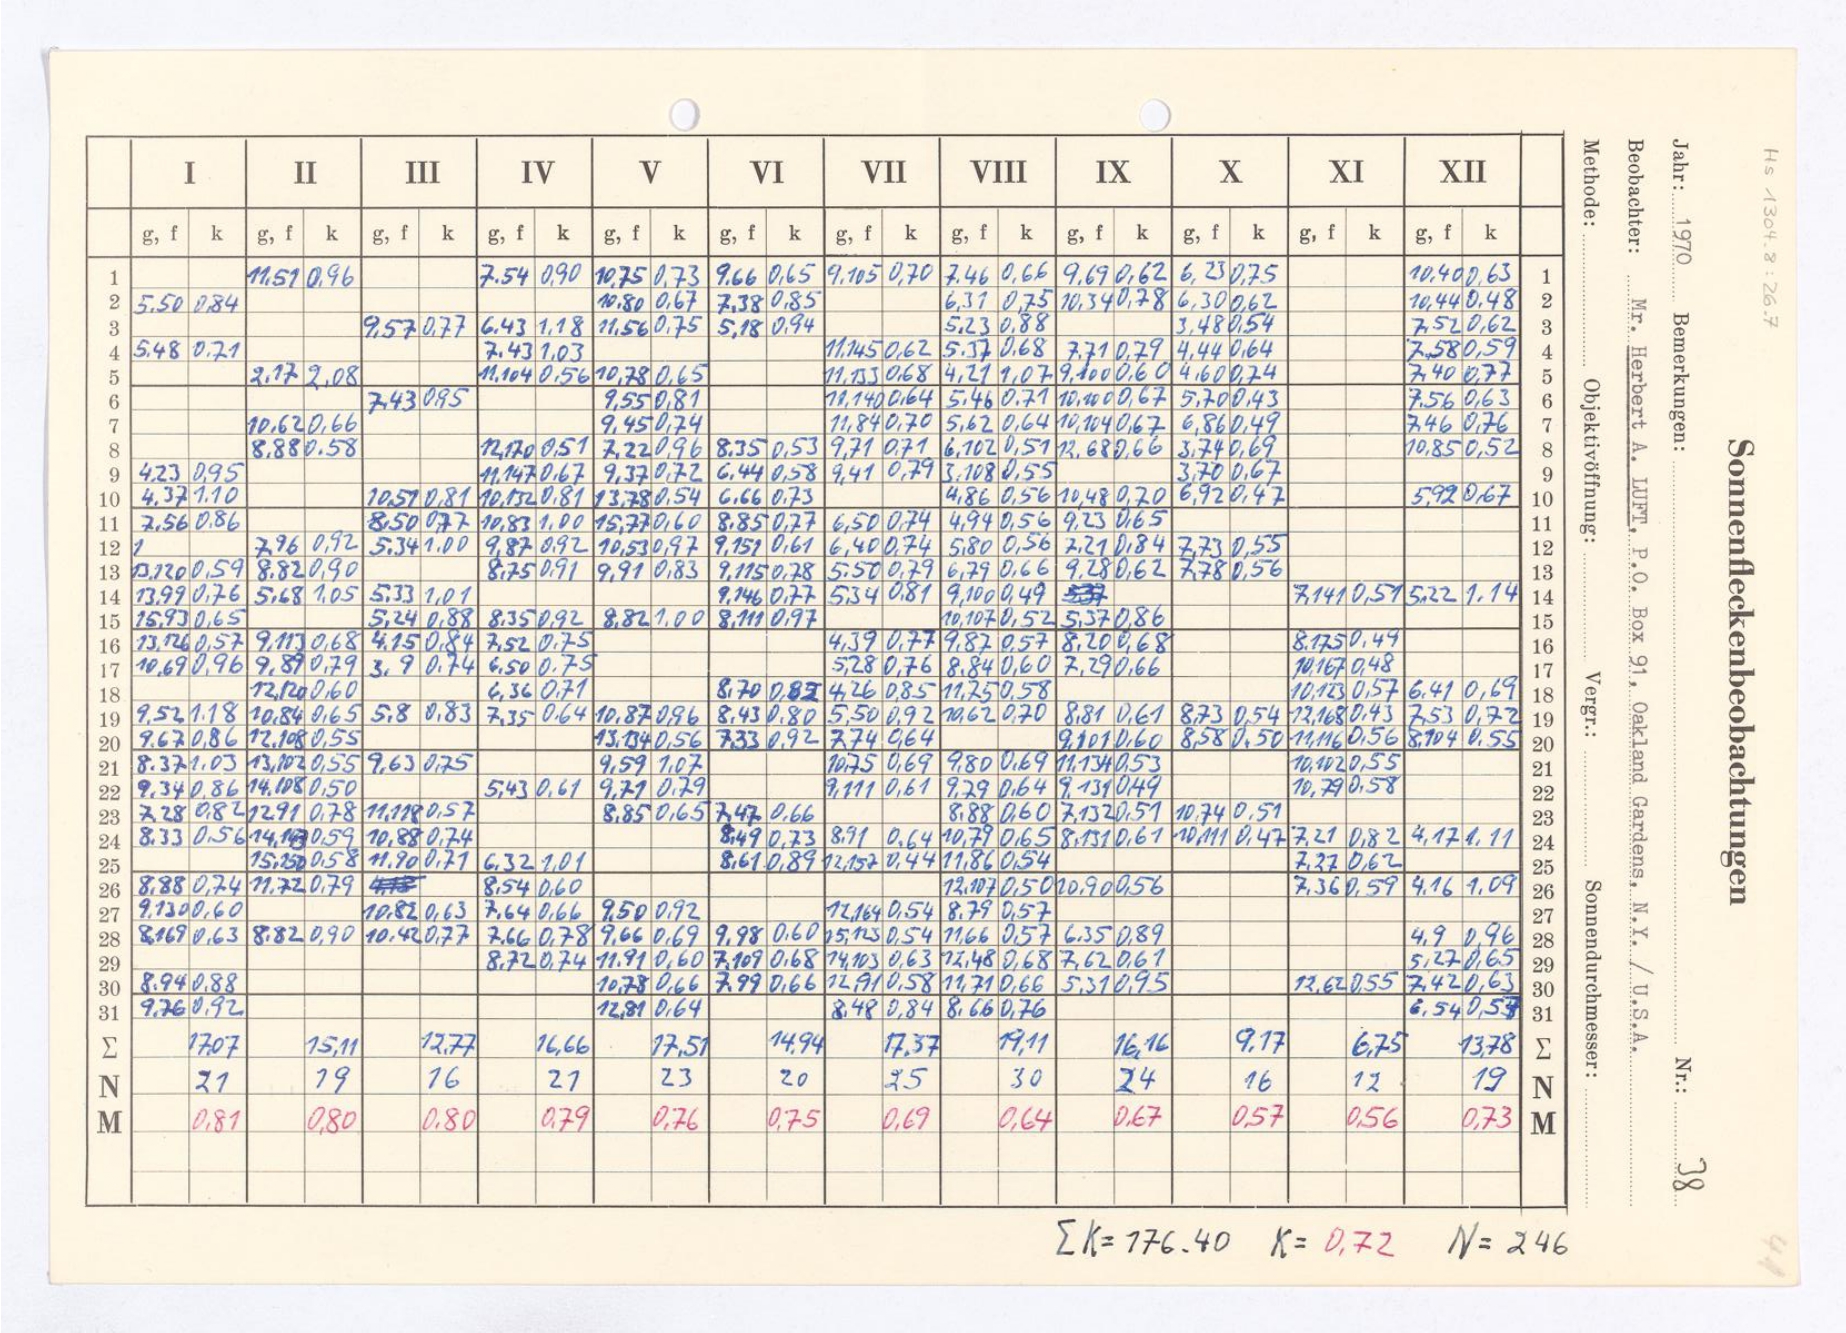 I II III IV V VI VII VIII IX X XI XII
g, f k g, f k g, f k g, f k g, f k g, f k g, f k g, f k g, f k g, f k g, f k g, f k
1 11,51 0,96 7.54 0,90 10,75 0,73 9,66 0,65 9,105 0,70 7.46 0,66 9,69 0,62 6,23 0,75 10,40 0,63 1
2 5.50 0,84 10.80 0,67 7,38 0,85 6,31 0,75 10,34 0,78 6,30 0,62 10,44 0.48 2
3 9,57 0,77 6.43 1,18 11,56 0,75 5,18 0,94 5,23 0,88 3,48 0,54 7,52 0,62 3
4 5.48 0.71 7.43 1,03 11,145 0,62 5.37 0,68 7,71 0,79 4,44 0,64 7,58 0,59 4
5 2,17 2,08 11,104 0,56 10,78 0,65 11,133 0,68 4,21 1,07 9,100 0,60 4,60 0,74 7,40 0,77 5
6 7,43 0,95 9,55 0,81 11,140 0,64 5.46 0.71 10,100 0,67 5,70 0,43 7.56 0,63 6
7 10,62 0,66 9,45 0,74 11,84 0,70 5,62 0,64 10,104 0,67 6,86 0,49 7.46 0,76 7
8 8,88 0.58 12,170 0,51 7,22 0,96 8.35 0,53 9,71 0,71 6,102 0,51 12,68 0,66 3,74 0,69 10,85 0,52 8
9 4.23 0,95 11,147 0,67 9,37 0,72 6.44 0,58 9,41 0,79 3,108 0,55 3,70 0,67 9
10 4,37 1,10 10,51 0,81 10,132 0,81 13,78 0,54 6.66 0,73 4,86 0,56 10,48 0,70 6,92 0,47 5,92 0,67 10
11 7,56 0,86 8,50 0,77 10,83 1,00 15,77 0,60 8,85 0,77 6,50 0,74 4,94 0,56 9,23 0,65 11
12 1 7,96 0,92 5.34 1,00 9,87 0,92 10,53 0,97 9,151 0,61 6,40 0,74 5,80 0,56 7,21 0,84 7,73 0,55 12
13 13,120 0,59 8.82 0,90 8,75 0,91 9,91 0,83 9,115 0,78 5.50 0,79 6,79 0,66 9,28 0,62 7,78 0,56 13
14 13,99 0,76 5,68 1,05 5,33 1,01 9,146 0,77 5,34 0,81 9,100 0,49 7,141 0,51 5,22 1,14 14
15 15,93 0,65 5,24 0,88 8,35 0,92 8,82 1,00 8,111 0,97 10,107 0,52 5,37 0,86 15
16 13,126 0,57 9,113 0,68 4,15 0,84 7,52 0,75 4,39 0,77 9,87 0,57 8,20 0,68 8,175 0,49 16
17 10,69 0,96 9,89 0,79 3, 9 0.74 6,50 0.75 5,28 0,76 8,84 0,60 7,29 0,66 10,167 0,48 17
18 12,120 0,60 6,36 0,71 8,70 0,82 4,26 0,85 11,75 0,58 10,123 0,57 6,41 0,69 18
19 9,52 1.18 10,84 0,65 5,8 0,83 7,35 0,64 10,87 0,96 8,43 0,80 5,50 0,92 10,62 0,70 8,81 0,61 8,73 0,54 12,168 0,43 7,53 0,72 19
20 9,67 0,86 12,108 0,55 13,134 0,56 7,33 0,92 7,74 0,64 9,101 0,60 8,58 0,50 11,116 0,56 8,104 0,55 20
21 8.37 1,03 13,102 0,55 9,63 0,75 9,59 1,07 10,75 0,69 9,80 0,69 11,134 0,53 10,102 0,55 21
22 9,34 0,86 14,108 0,50 5,43 0,61 9,71 0,79 9,111 0,61 9,79 0,64 9,131 0,49 10,79 0,58 22
23 7,28 0,82 12,91 0,78 11,118 0,57 8,85 0,65 7,47 0,66 8,88 0,60 7,132 0,51 10,74 0,51 23
24 8.33 0,56 0,59 10,88 0,74 8,49 0,73 8,91 0,64 10,79 0,65 8,131 0,61 10,111 0,47 7,21 0,82 4,17 1,11 24
25 15,150 0,58 11,90 0,71 6,32 1,01 8,61 0,89 12,157 0,44 11,86 0,54 7,27 0,62 25
26 8,88 0,74 11,72 0,79 8,54 0,60 12,107 0,50 10,90 0,56 7,36 0,59 4,16 1,09 26
27 9,130 0,60 10,82 0,63 7,64 0,66 9,50 0,92 12,164 0,54 8,79 0,57 27
28 8,169 0,63 8,82 0,90 10,42 0,77 7,66 0,78 9,66 0,69 9,98 0,60 15,123 0,54 11,66 0,57 6.35 0,89 4,9 0,96 28
29 8,72 0,74 11,91 0,60 7,109 0,68 14,103 0,63 12,48 0,68 7,62 0,61 5,27 0,65 29
30 8.94 0,88 10,78 0,66 7,99 0,66 12,91 0,58 11,71 0,66 5,31 0,95 12,62 0,55 7,42 0,63 30
31 9,76 0,92 12,81 0,64 8,48 0,84 8,66 0,76 6,54 0,57 31
Σ 17,07 15,11 12,77 16,66 17,51 14,94 17,37 19,11 16,16 9,17 6,75 13,78 Σ
N 21 19 16 21 23 20 25 30 24 16 12 19 N
M 0,81 0,80 0,80 0,79 0,76 0,75 0,69 0,64 0,67 0,57 0,56 0,73 M
ΣK = 176.40 K = 0,72 N = 246
Hs 1304.8:26.7
Sonnenfleckenbeobachtungen
Jahr: 1970 Bemerkungen: Nr.: 38
Beobachter: Mr. Herbert A. LUFT, P.O. Box 91, Oakland Gardens, N.Y. / U.S.A.
Methode: Objektivöffnung: Vergr.: Sonnendurchmesser: